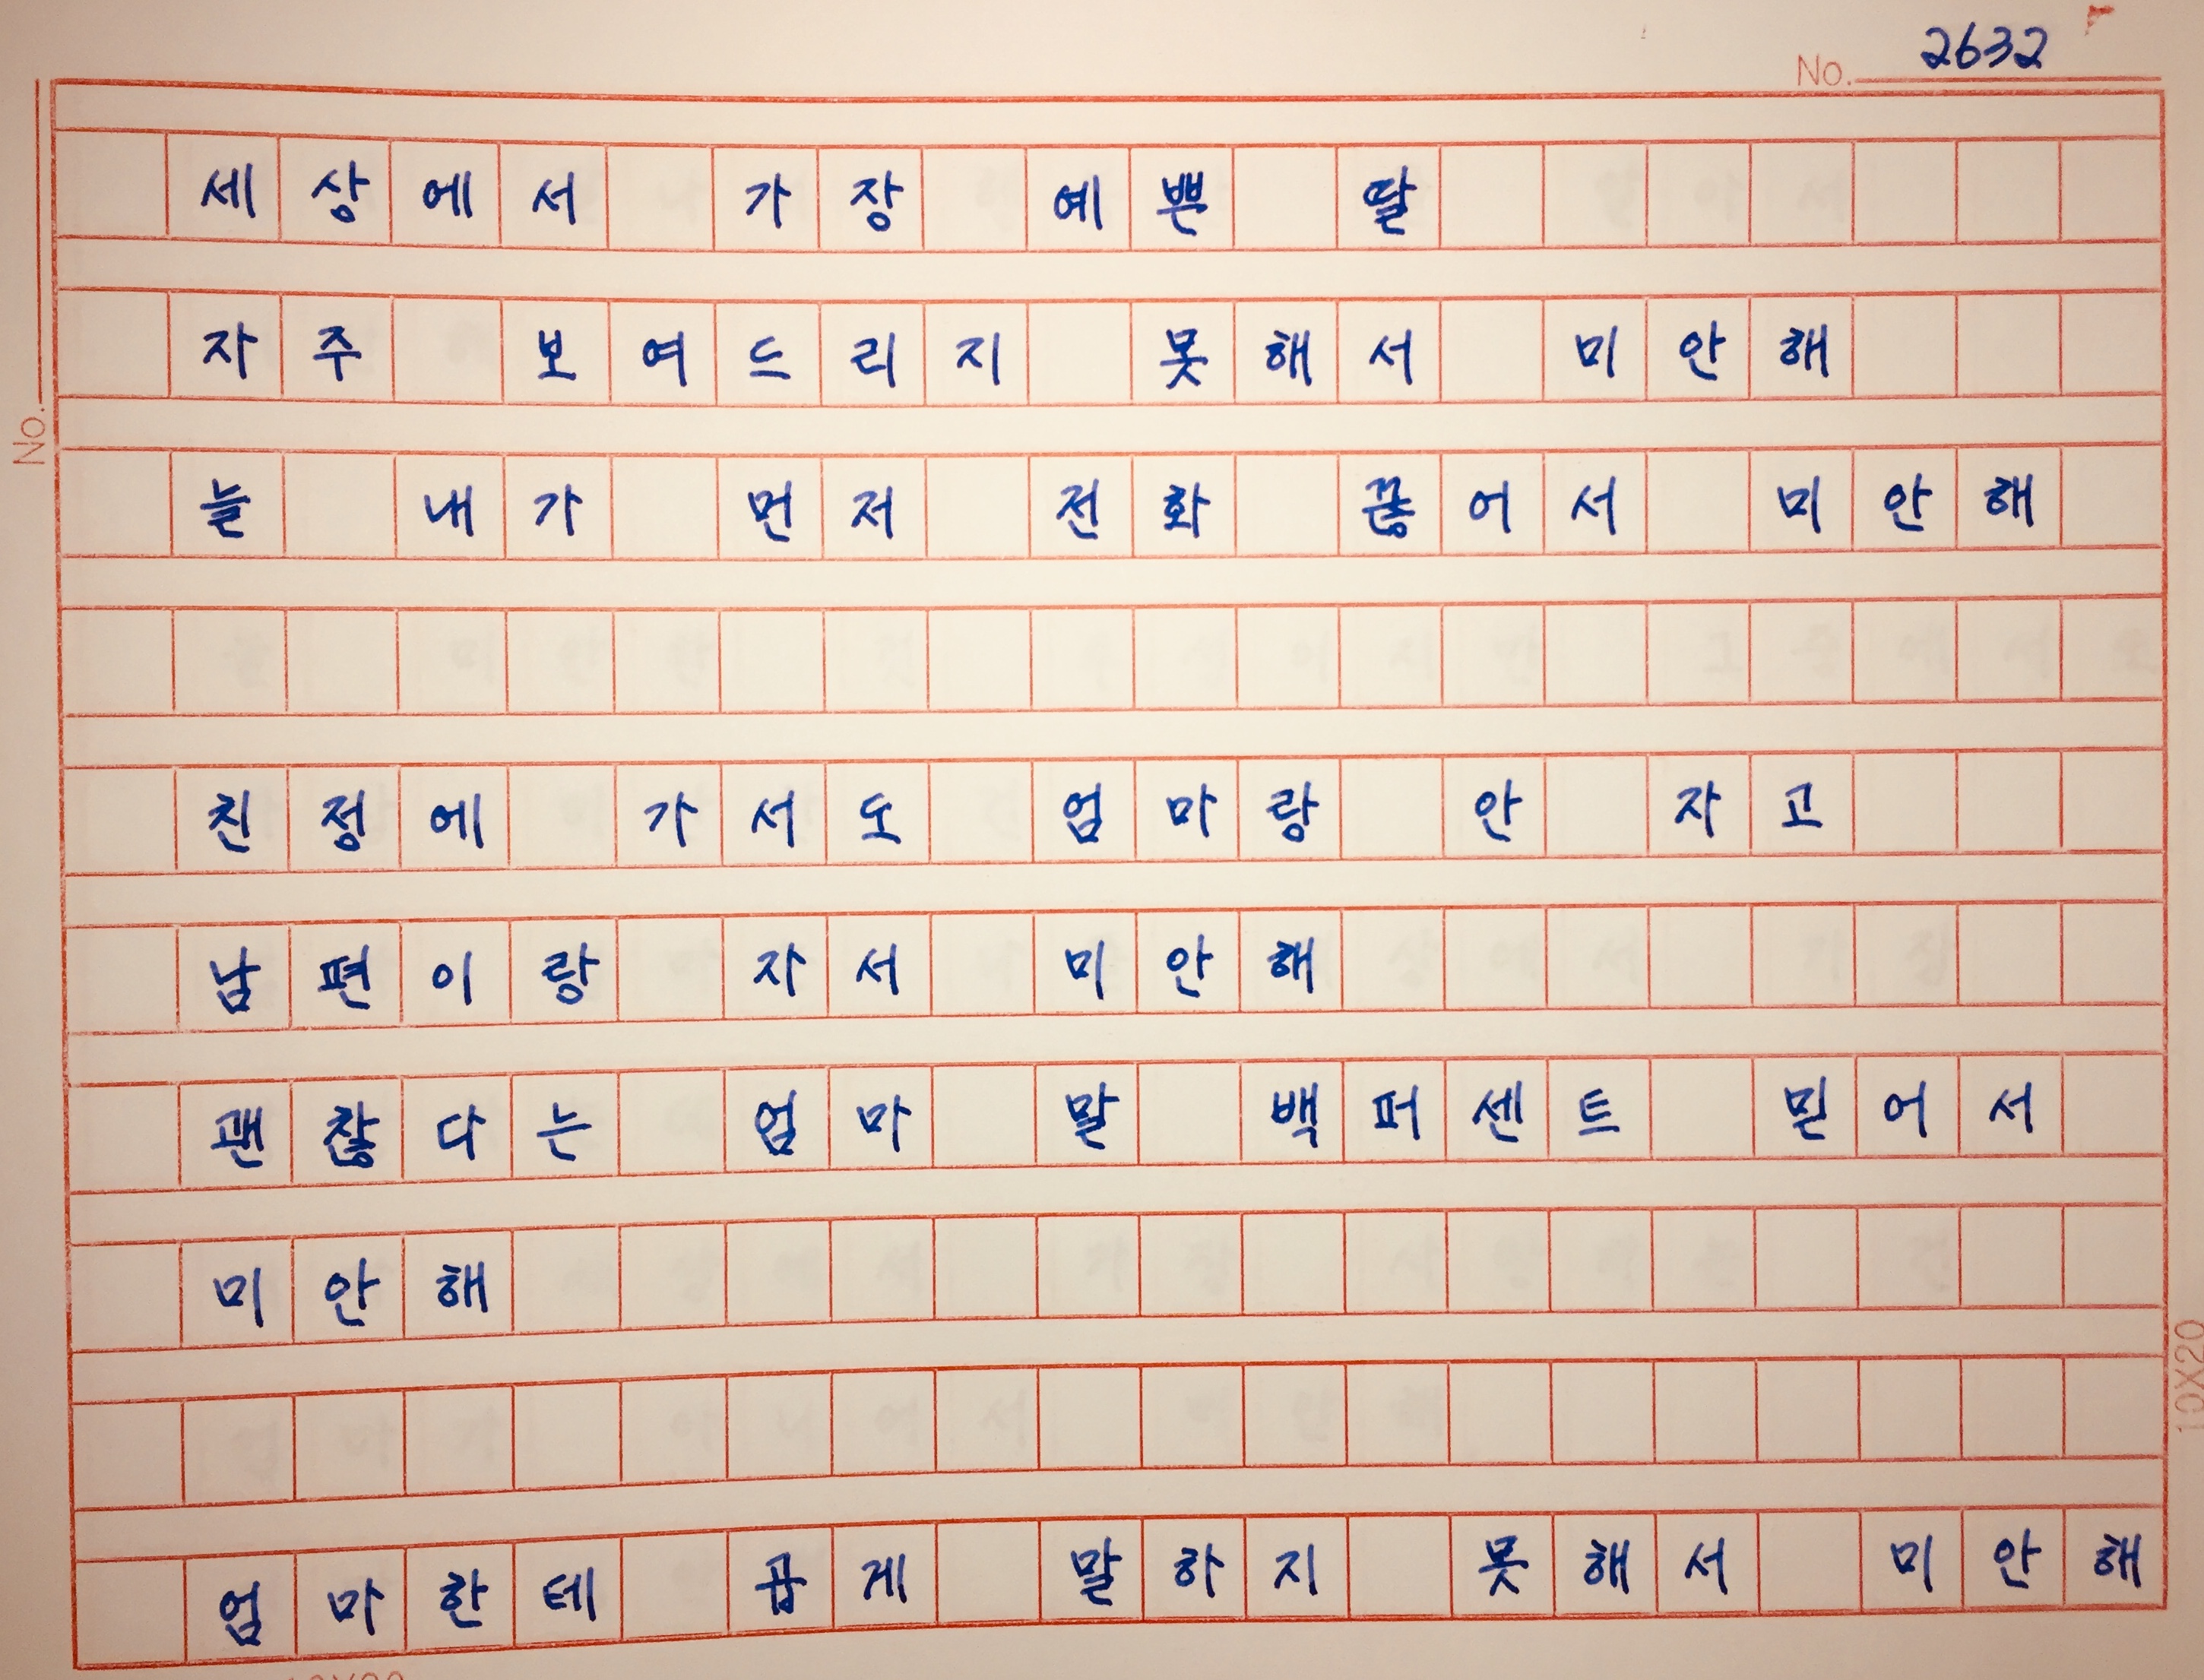 No. 2632
세상에서 가장 예쁜 딸
자주 보여드리지 못해서 미안해
늘 내가 먼저 전화 끊어서 미안해
친정에 가서도 엄마랑 안 자고
남편이랑 자서 미안해
괜찮다는 엄마 말 백퍼센트 믿어서
미안해
엄마한테 곱게 말하지 못해서 미안해
No.
10X20